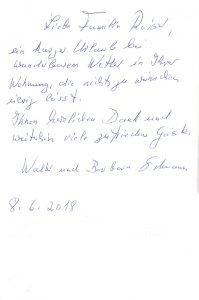 Liebe Familie
ein kurzer Urlaub bei
wunderbarem Wetter in Ihrer
Wohnung, die nichts zu wünschen
übrig lässt.
Ihnen herzlichen Dank und
weiterhin viele zufriedene Gäste.
Walter und Barbara
8.6.2018